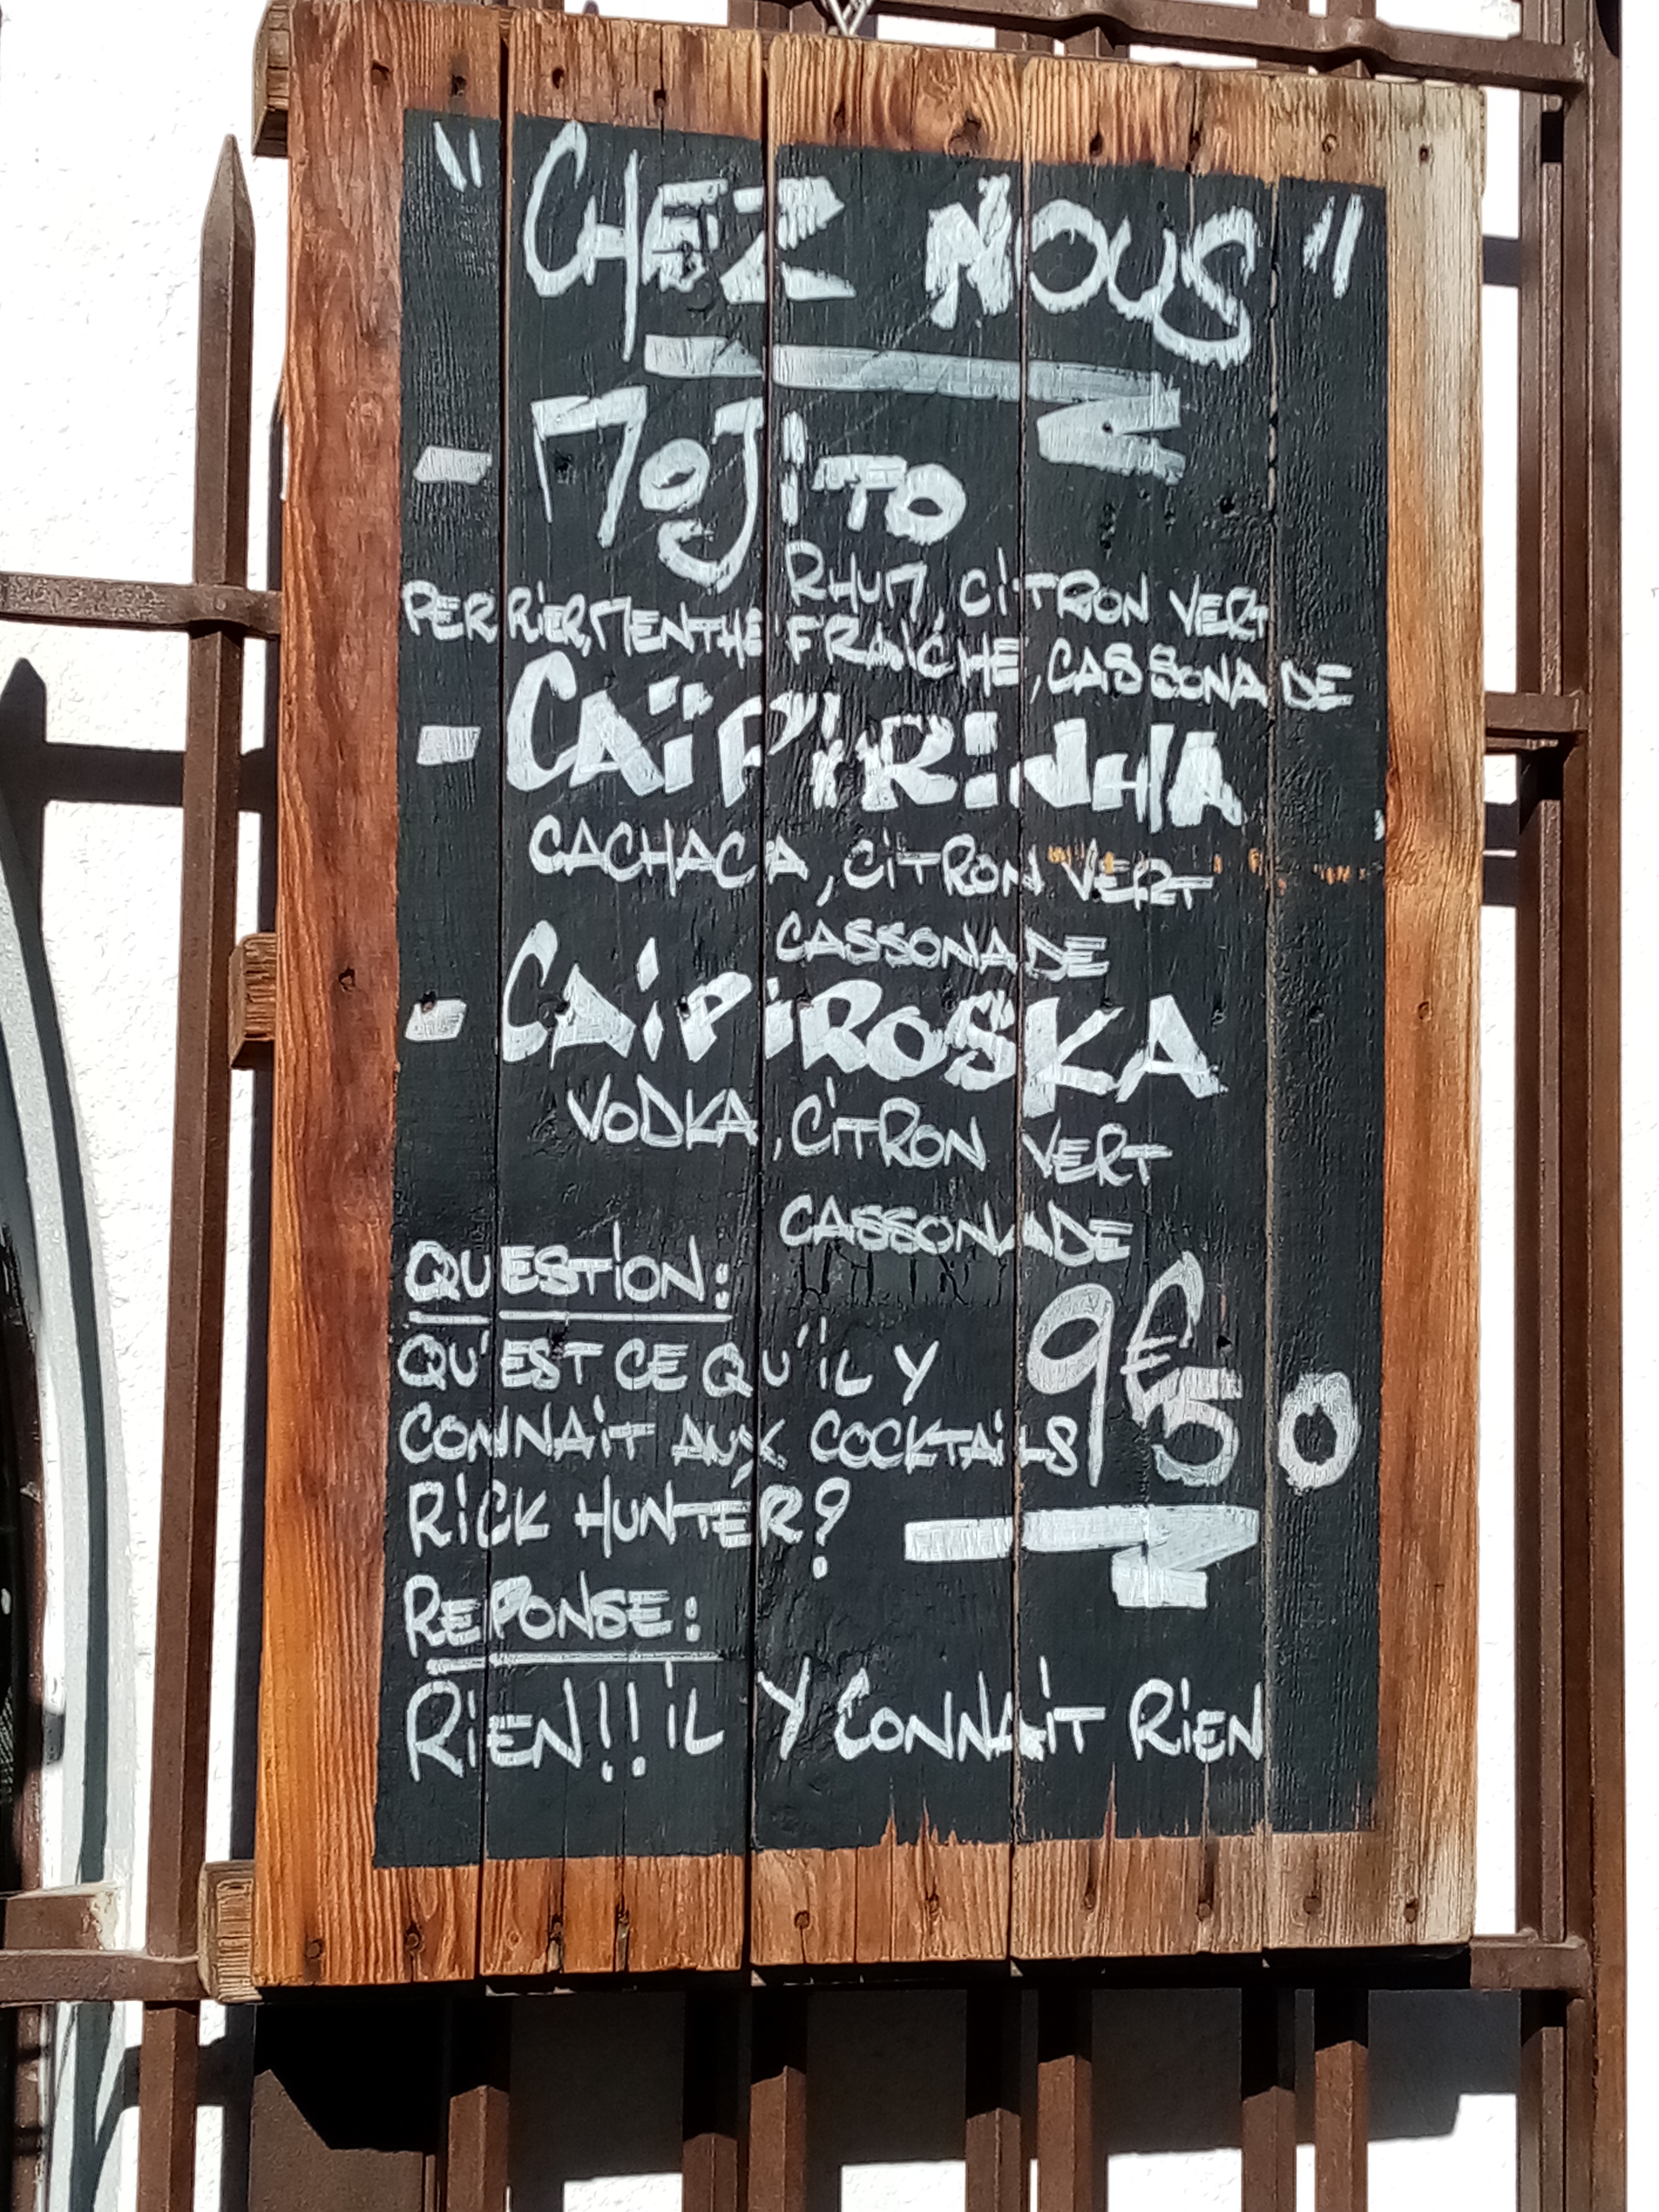 "CHEZ NOUS"
- MOJITO
RHUM, CITRON VERT
PERRIER, MENTHE FRAICHE, CASSONADE
- CAÏPIRINHA
CACHACA, CITRON VERT
CASSONADE
- CAIPIROSKA
VODKA, CITRON VERT
CASSONADE
QUESTION:
QU'EST CE QU'IL Y
9€50
CONNAIT AUX COCKTAILS
RICK HUNTER?
REPONSE:
RIEN!! IL Y CONNAIT RIEN